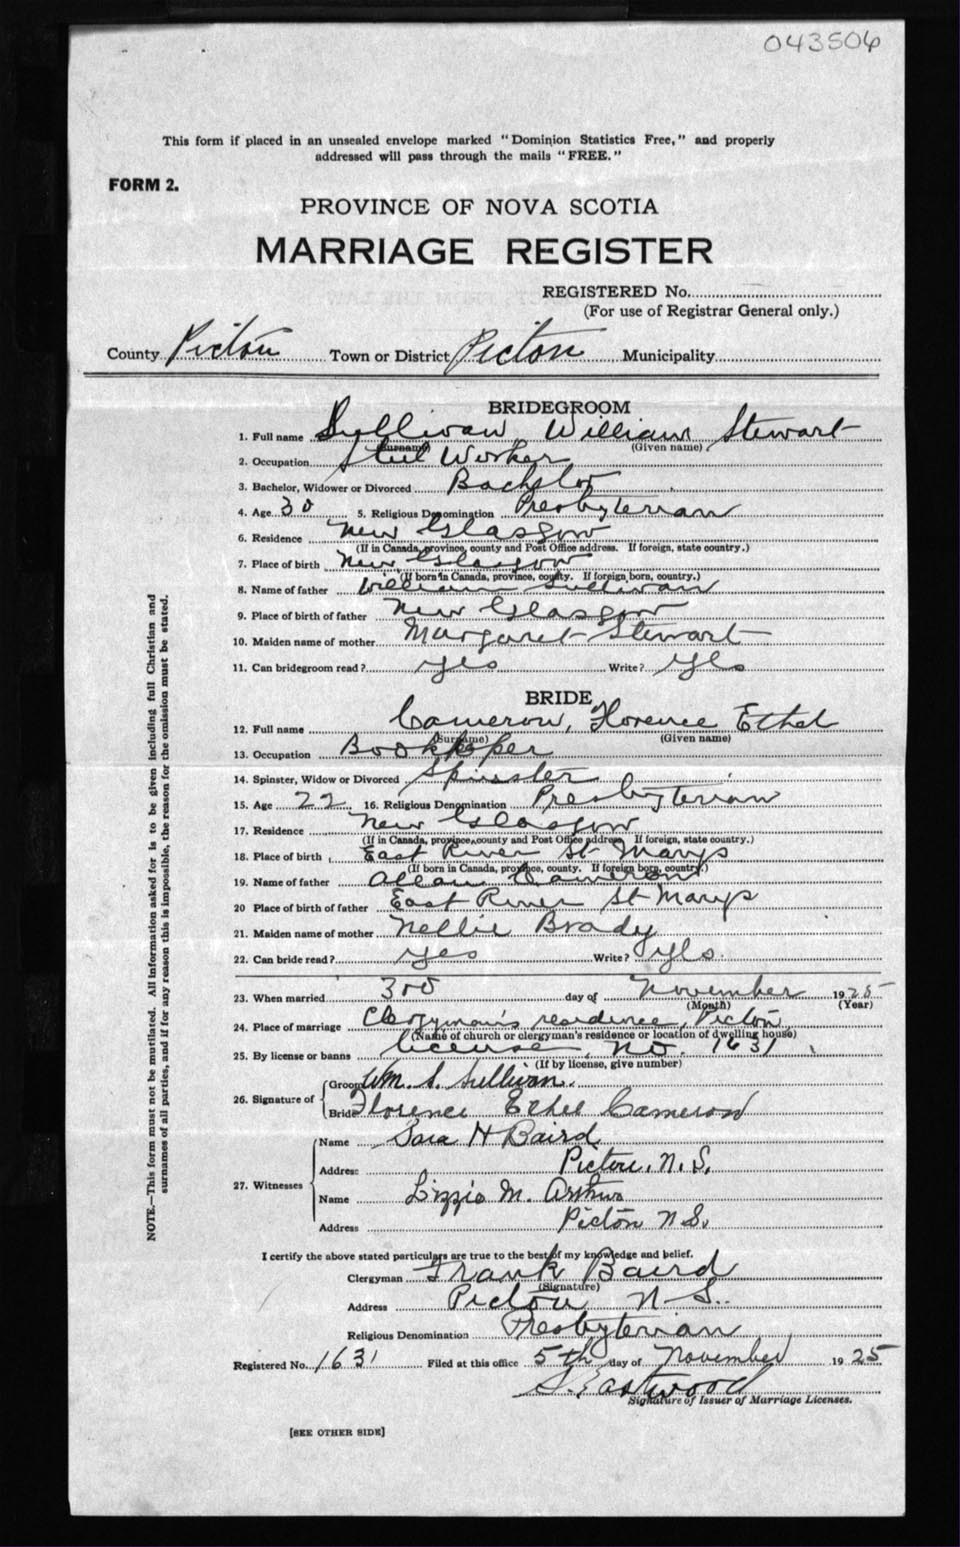 043506
This form if placed in an unsealed envelope marked "Dominion Statistics Free," and properly
addressed will pass through the mails "FREE."
FORM 2.
PROVINCE OF NOVA SCOTIA
MARRIAGE REGISTER
REGISTERED No.
(For use of Registrar General only.)
County Pictou Town or District Pictou Municipality
BRIDEGROOM
1. Full name Sullivan William Stewart
(Surname) (Given name)
2. Occupation Steel Worker
3. Bachelor, Widower or Divorced Bachelor
4. Age 30 5. Religious Denomination Presbyterian
6. Residence New Glasgow
(If in Canada, province, county and Post Office address. If foreign, state country.)
7. Place of birth New Glasgow
(If born in Canada, province, county. If foreign born, country.)
8. Name of father William Sullivan
9. Place of birth of father New Glasgow
10. Maiden name of mother Margaret Stewart
11. Can bridegroom read? yes Write? yes
BRIDE
12. Full name Cameron, Florence Ethel
(Surname) (Given name)
13. Occupation Bookkeeper
14. Spinster, Widow or Divorced Spinster
15. Age 22 16. Religious Denomination Presbyterian
17. Residence New Glasgow
(If in Canada, province, county and Post Office address. If foreign, state country.)
18. Place of birth East River St Marys
(If born in Canada, province, county. If foreign born, country.)
19. Name of father Allan Cameron
20 Place of birth of father East River St Marys
21. Maiden name of mother Nellie Brady
22. Can bride read? yes Write? yes.
23. When married 3rd day of November 1925
(Month) (Year)
24. Place of marriage Clergyman's residence, Pictou
(Name of church or clergyman's residence or location of dwelling house)
25. By license or banns license, no. 1631
(If by license, give number)
26. Signature of
Groom Wm. S. Sullivan.
Bride Florence Ethel Cameron
27. Witnesses
Name Sara H Baird
Address Pictou, N.S.
Name Lizzie M. Arthur
Address Pictou N.S.
I certify the above stated particulars are true to the best of my knowledge and belief.
Clergyman Frank Baird
(Signature)
Address Pictou N-S.
Religious Denomination Presbyterian
Registered No. 1631 Filed at this office 5th day of November 1925
S. Eastwood
Signature of Issuer of Marriage Licenses.
[SEE OTHER SIDE]
NOTE.—This form must not be mutilated. All information asked for is to be given including full Christian and
surnames of all parties, and if for any reason this is impossible, the reason for the omission must be stated.